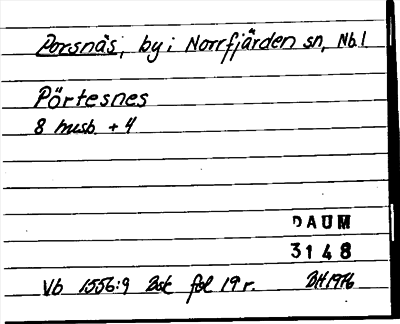 Porsnäs, by i Norrfjärden sn, Nb.l
Pörtesnes
8 husb. + 4
DAUM
3148
Vb 1556:9 Bsk fol 19 r. BH 1976